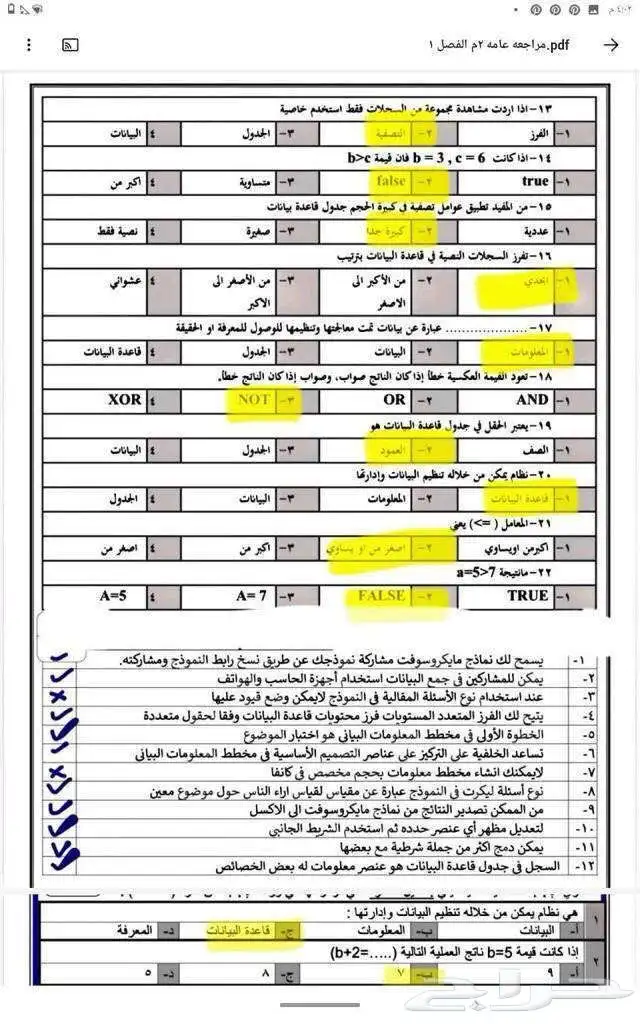 ٤:٠٢ م
مراجعه عامه ٢م الفصل ١.pdf
١٣-اذا اردت مشاهدة مجموعة من السجلات فقط استخدم خاصية
١- الفرز ٢- التصفية ٣- الجدول ٤ البيانات
١٤-اذا كانت b = 3 , c = 6 فان قيمة b>c
١- true ٢- false ٣- متساوية ٤ اكبر من
١٥-من المفيد تطبيق عوامل تصفية في كبيرة الحجم جدول قاعدة بيانات
١- عددية ٢- كبيرة جدا ٣- صغيرة ٤ نصية فقط
١٦-تفرز السجلات النصية في قاعدة البيانات بترتيب
١- ابجدي ٢- من الأكبر الى الاصغر ٣- من الأصغر الى الاكبر ٤ عشوائي
١٧-.................... عبارة عن بيانات تمت معالجتها وتنظيمها للوصول للمعرفة او الحقيقة
١- المعلومات ٢- البيانات ٣- الجدول ٤ قاعدة البيانات
١٨-تعود القيمة العكسية خطأ إذا كان الناتج صواب، وصواب إذا كان الناتج خطأ.
١- AND ٢- OR ٣- NOT ٤ XOR
١٩-يعتبر الحقل في جدول قاعدة البيانات هو
١- الصف ٢- العمود ٣- الجدول ٤ البيانات
٢٠-نظام يمكن من خلاله تنظيم البيانات وإدارتها
١- قاعدة البيانات ٢- المعلومات ٣- البيانات ٤ الجدول
٢١-المعامل ( =>) يعني
١- اكبرمن اويساوي ٢- اصغر من او يساوي ٣- اكبر من ٤ اصغر من
٢٢-مانتيجة a=5>7
١- TRUE ٢- FALSE ٣- A= 7 ٤ A=5
١- يسمح لك نماذج مايكروسوفت مشاركة نموذجك عن طريق نسخ رابط النموذج ومشاركته.
٢- يمكن للمشاركين في جمع البيانات استخدام أجهزة الحاسب والهواتف
٣- عند استخدام نوع الأسئلة المقالية في النموذج لايمكن وضع قيود عليها
٤- يتيح لك الفرز المتعدد المستويات فرز محتويات قاعدة البيانات وفقا لحقول متعددة
٥- الخطوة الأولى في مخطط المعلومات البياني هو اختبار الموضوع
٦- تساعد الخلفية على التركيز على عناصر التصميم الأساسية في مخطط المعلومات البياني
٧- لايمكنك انشاء مخطط معلومات بحجم مخصص في كانفا
٨- نوع أسئلة ليكرت في النموذج عبارة عن مقياس لقياس اراء الناس حول موضوع معين
٩- من الممكن تصدير النتائج من نماذج مايكروسوفت الى الاكسل
١٠- لتعديل مظهر أي عنصر حدده ثم استخدم الشريط الجانبي
١١- يمكن دمج اكثر من جملة شرطية مع بعضها
١٢- السجل في جدول قاعدة البيانات هو عنصر معلومات له بعض الخصائص
١ هي نظام يمكن من خلاله تنظيم البيانات وإدارتها :
أ- البيانات ب- المعلومات ج- قاعدة البيانات د- المعرفة
٢ إذا كانت قيمة b=5 ناتج العملية التالية (.....=b+2)
أ- ٩ ب- ٧ ج- ٨ د- ٥
حراج